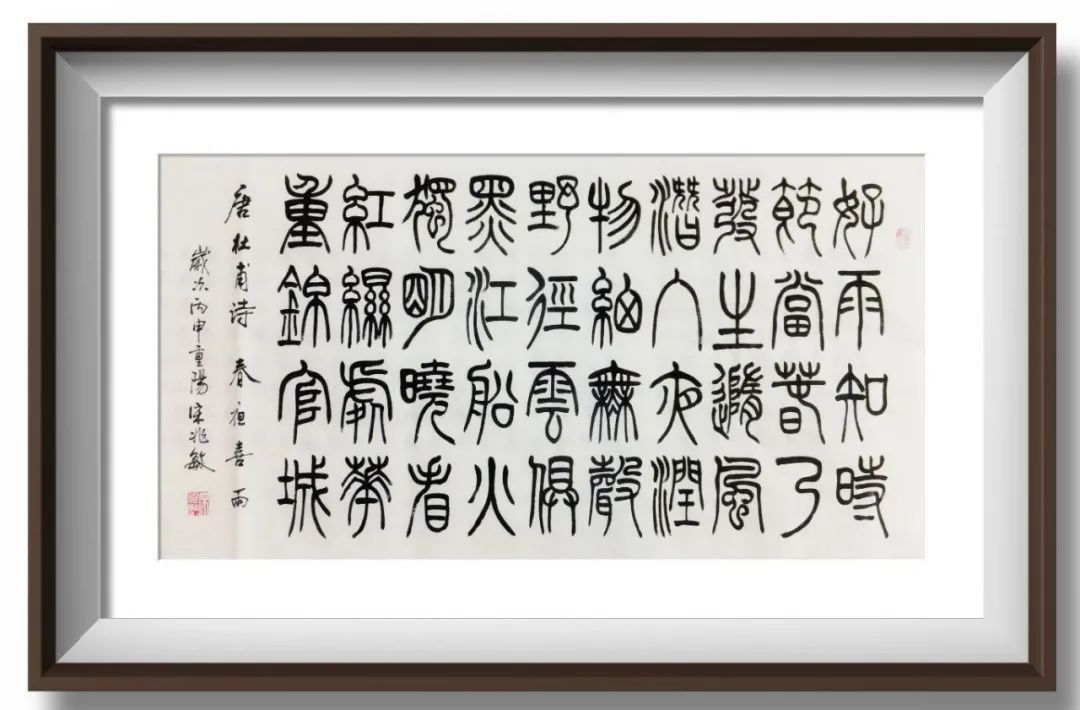 好雨知時
節當春乃
發生隨風
潛入夜潤
物細無聲
野徑雲俱
黑江船火
獨明曉看
紅濕處華
重錦官城
唐杜甫诗 春夜喜雨
歲次丙申重陽宋兆敏